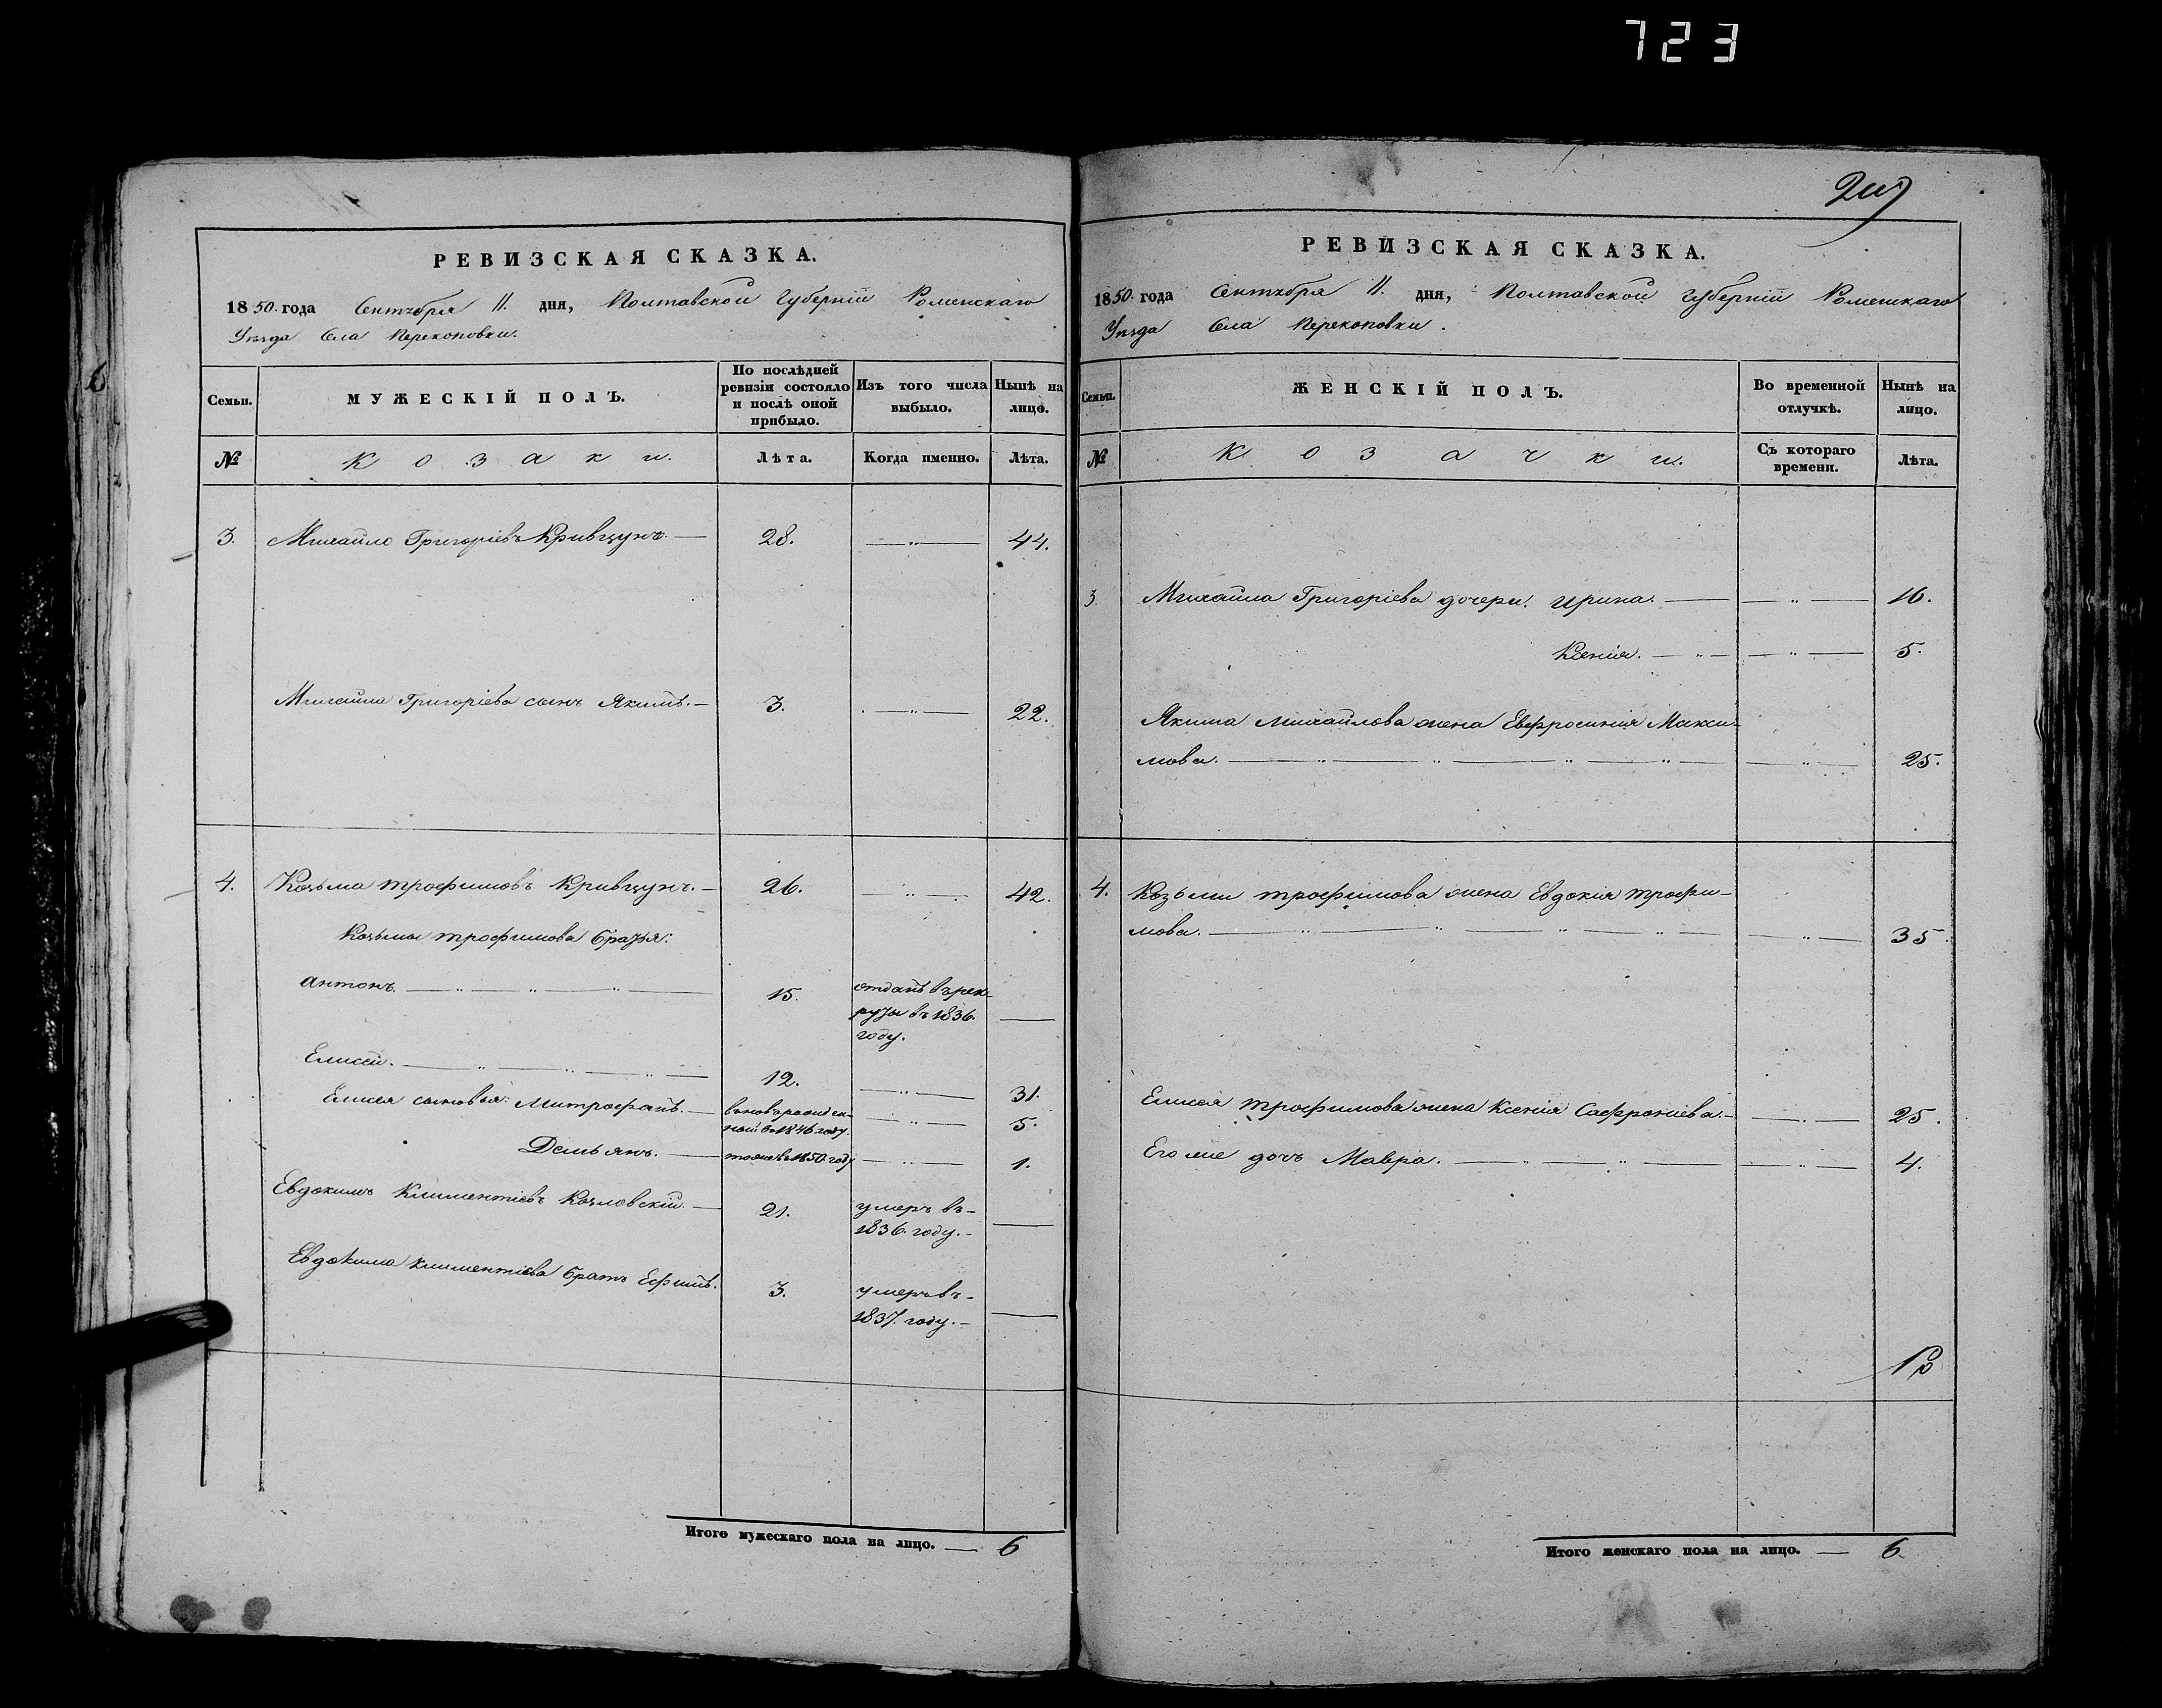 723
РЕВИЗСКАЯ СКАЗКА.
1850. года Сентября 11. дня, Полтавской Губерніи Роменскаго
Уѣзда Села Перекоповки.
Семьи.
МУЖЕСКІЙ ПОЛЪ.
По послѣдней
ревизіи состояло
и послѣ оной
прибыло.
Изъ того числа
выбыло.
Нынѣ на
лицо.
№
Козаки.
Лѣта.
Когда именно.
Лѣта.
3. Михайло Григоріевъ Кривцунъ. — 28. — „ — 44.
Михайла Григоріева сынъ Якимъ. — 3. — „ — 22.
4. Козьма Трофимовъ Кривцунъ. — 26. — „ — 42.
Козьмы Трофимова братья:
Антонъ. — „ — „ — „ — 15. отданъ въ рек-
руты въ 1836.
году.
Елисей. — „ — „ — „ — 12. — „ — 31.
Елисея сыновья: Митрофанъ. — вновь рожден-
ный въ 1846. году. — „ — 5.
Демьянъ. — тоже въ 1850. году — „ — 1.
Евдокимъ Климентіевъ Козловскій. — 21. умеръ въ —
1836. году. —
Евдокима Климентіева братъ Ефимъ. 3. умеръ въ —
1837. году. —
Итого мужескаго пола на лицо. — 6
РЕВИЗСКАЯ СКАЗКА.
1850. года Сентября 11. дня, Полтавской Губерніи Роменскаго
Уѣзда Села Перекоповки.
Семьи.
ЖЕНСКІЙ ПОЛЪ.
Во временной
отлучкѣ.
Нынѣ на
лицо.
№
Козачки.
Съ котораго
времени.
Лѣта.
3 Михайла Григоріева дочери: Ирина. — — „ — 16.
Ксенія. — „ — — „ — 5.
Якима Михайлова жена Евфросинія Макси-
мова. — „ — „ — „ — „ — — „ — 25.
4. Козьмы Трофимова жена Евдокія Трофи-
мова. — „ — „ — „ — „ — — „ — 35.
Елисея Трофимова жена Ксенія Сафроніева. — — „ — 25.
Его же дочь Мавра. — „ — „ — — „ — 4.
Итого женскаго пола на лицо. — 6.